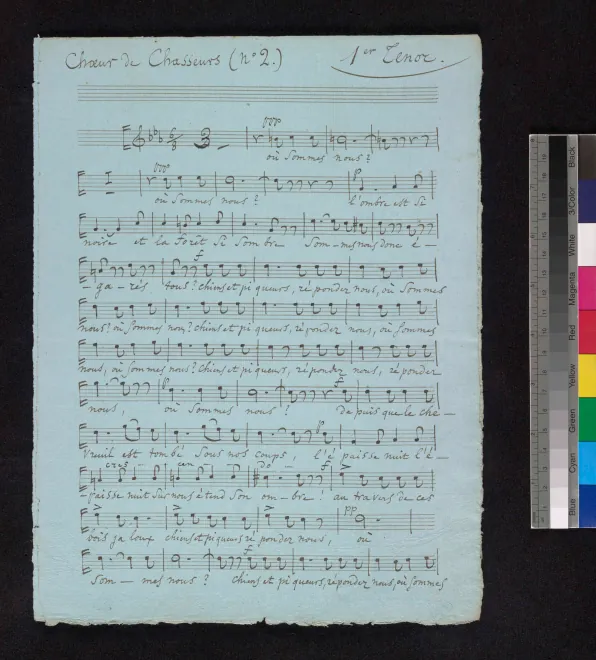 Chœur de Chasseurs (n° 2.) 1er Tenor.
3
ppp
où sommes nous?
ppp
où sommes nous? l'ombre est si
p
noire et la forêt si sombre som-mes nous donc é-
f
-ga-rés tous? chiens et piqueurs, répondez nous, où sommes
nous? où sommes nous? chiens et piqueurs, répondez nous, où sommes
nous, où sommes nous? chiens et piqueurs, répondez nous, répondez
p f
nous, où sommes nous? depuis que le che-
p
vreuil est tombé sous nos coups, l'épaisse nuit l'é-
cres - cen - do - f
-paisse nuit sur nous étend son om-bre! au travers de ces
pp
bois jaloux chiens et piqueurs répondez nous, où
f
som-mes nous? chiens et piqueurs, répondez nous, où sommes
Black
3/Color
White
Magenta
Red
Yellow
Green
Cyan
Blue